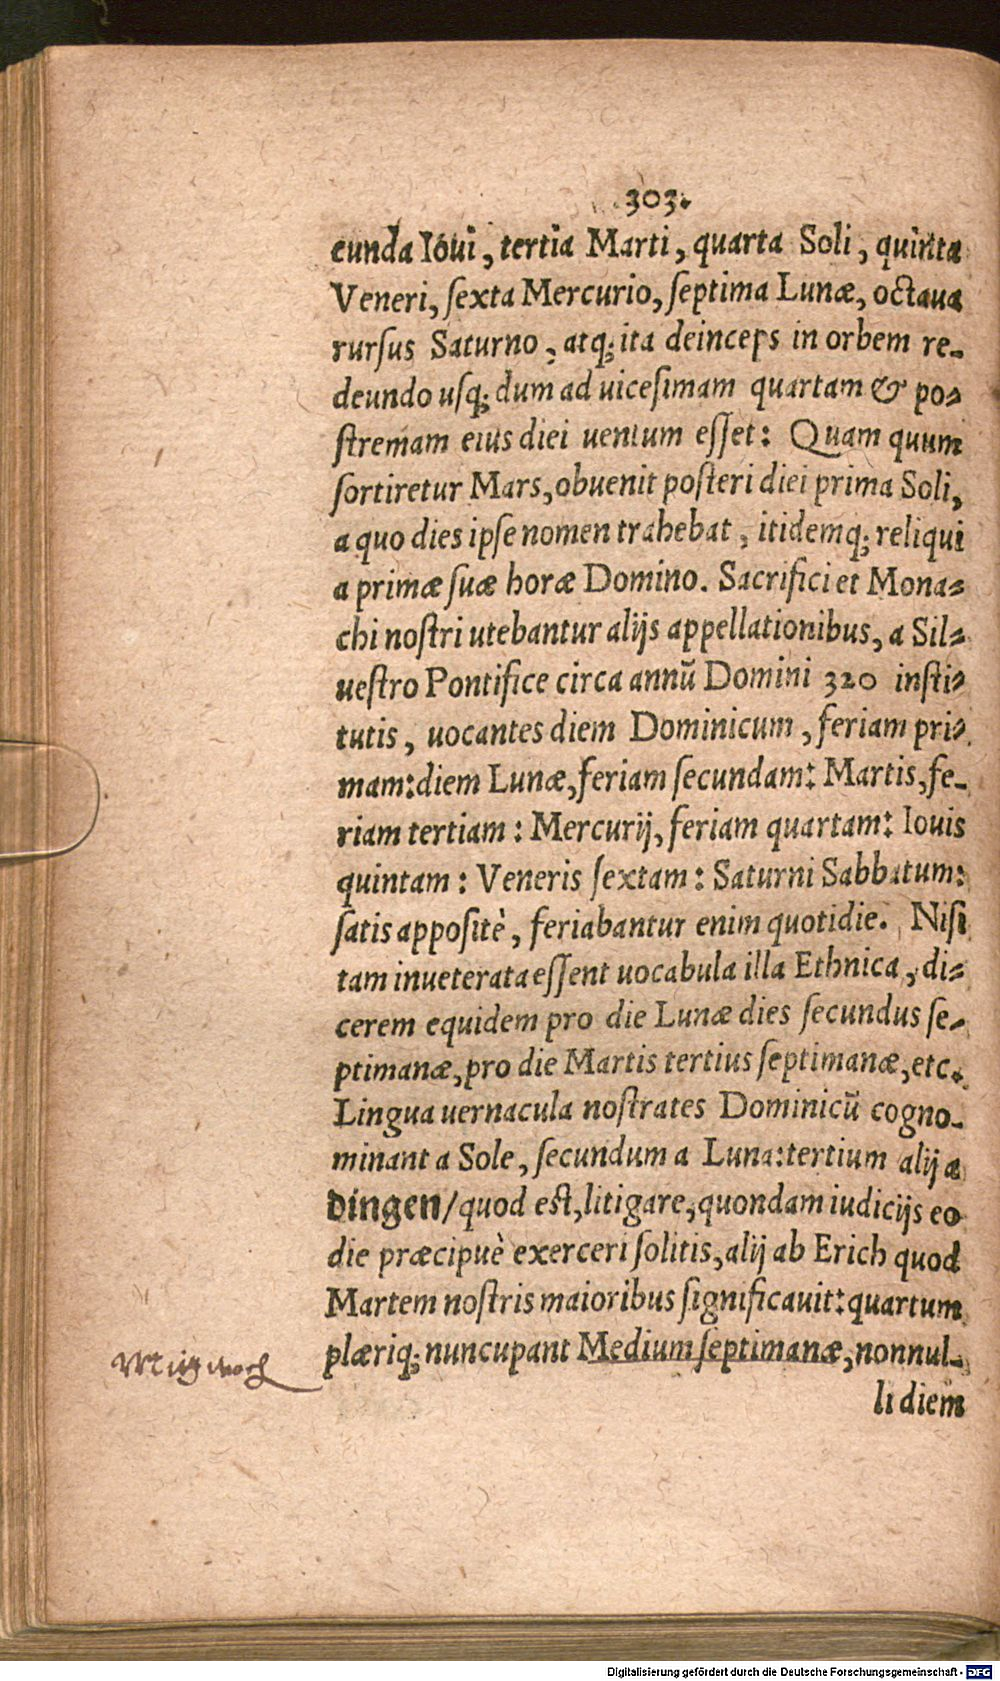 303.
cunda Ioui, tertia Marti, quarta Soli, quinta
Veneri, ſexta Mercurio, ſeptima Lunæ, octaua
rurſus Saturno, atq; ita deinceps in orbem re-
deundo uſq; dum ad uiceſimam quartam & po-
ſtremam eius diei uentum eſſet: Quam quum
ſortiretur Mars, obuenit poſteri diei prima Soli,
a quo dies ipſe nomen trahebat, itidemq; reliqui
a primæ ſuæ horæ Domino. Sacrifici et Mona-
chi noſtri utebantur alijs appellationibus, a Sil-
ueſtro Pontifice circa annū Domini 320 inſti-
tutis, uocantes diem Dominicum, feriam pri-
mam: diem Lunæ, feriam ſecundam: Martis, fe-
riam tertiam: Mercurij, feriam quartam: Iouis
quintam: Veneris ſextam: Saturni Sabbatum:
ſatis appoſitè, feriabantur enim quotidie. Niſi
tam inueterata eſſent uocabula illa Ethnica, di-
cerem equidem pro die Lunæ dies ſecundus ſe-
ptimanæ, pro die Martis tertius ſeptimanæ, etc.
Lingua uernacula noſtrates Dominicū cogno-
minant a Sole, ſecundum a Luna: tertium alij a
dingen/ quod eſt, litigare, quondam iudicijs eo
die præcipuè exerceri ſolitis, alij ab Erich quod
Martem noſtris maioribus ſignificauit: quartum
plæriq; nuncupant Medium ſeptimanæ, nonnul-
li diem
Digitalisierung gefördert durch die Deutsche Forschungsgemeinschaft - DFG